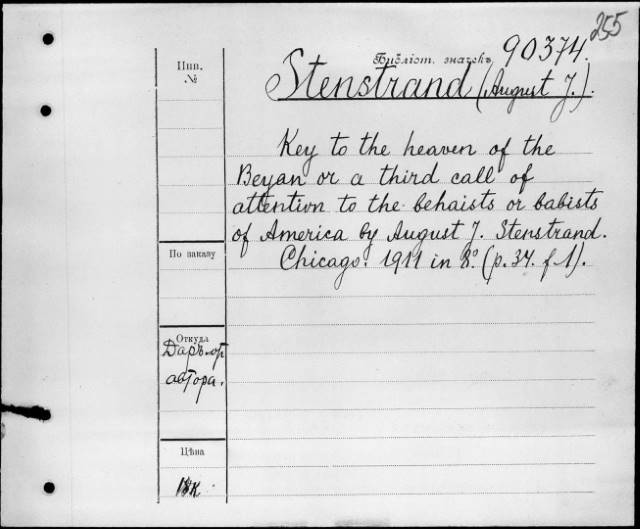 255
90374.
Библіот. значекъ
Инв.
№
Stenstrand (August J.).
Key to the heaven of the
Beyan or a third call of
attention to the behaists or babists
of America by August J. Stenstrand.
Chicago. 1911 in 8º. (p. 34. f. 1).
По заказу
Откуда
Даръ от
автора.
Цѣна
к